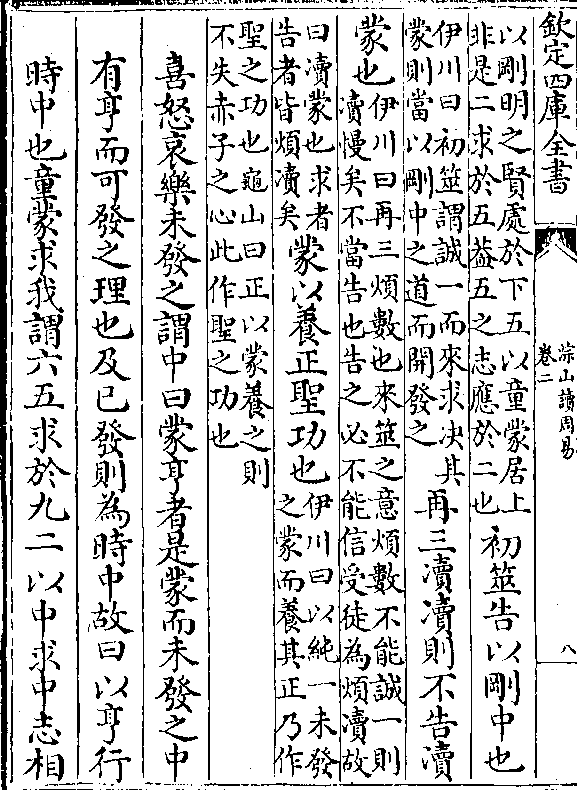 欽定四庫全書
淙山讀周易
卷二
八
以剛明之賢處於下五以童蒙居上
非是二求於五葢五之志應於二也
初筮告以剛中也
伊川曰初筮謂誠一而來求决其
蒙則當以剛中之道而開發之
再三瀆瀆則不告瀆
蒙也
伊川曰再三煩數也來筮之意煩數不能誠一則
瀆慢矣不當告也告之必不能信受徒為煩瀆故
曰瀆蒙也求者
告者皆煩瀆矣
蒙以養正聖功也
伊川曰以純一未發
之蒙而養其正乃作
聖之功也龜山曰正以蒙養之則
不失赤子之心此作聖之功也
喜怒哀樂未發之謂中曰蒙亨者是蒙而未發之中
有亨而可發之理也及已發則為時中故曰以亨行
時中也童蒙求我謂六五求於九二以中求中志相